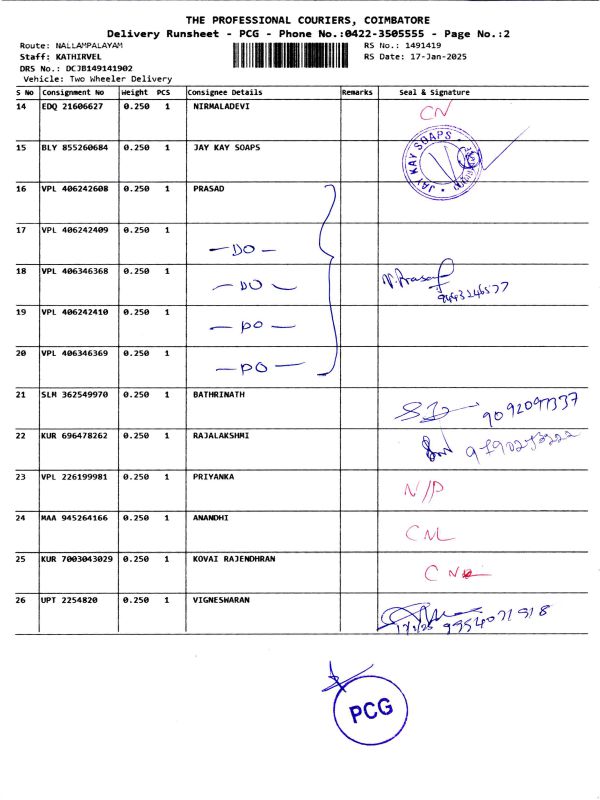 THE PROFESSIONAL COURIERS, COIMBATORE
Delivery Runsheet - PCG - Phone No.:0422-3505555 - Page No.:2
Route: NALLAMPALAYAM RS No.: 1491419
Staff: KATHIRVEL RS Date: 17-Jan-2025
DRS No.: DCJB149141902
Vehicle: Two Wheeler Delivery
S No Consignment No Weight PCS Consignee Details Remarks Seal & Signature
14 EDQ 21606627 0.250 1 NIRMALADEVI CN
15 BLY 855260684 0.250 1 JAY KAY SOAPS JAY KAY SOAPS
16 VPL 406242608 0.250 1 PRASAD
17 VPL 406242409 0.250 1 -DO-
18 VPL 406346368 0.250 1 -DO- V.Prasad
19 VPL 406242410 0.250 1 -DO-
20 VPL 406346369 0.250 1 -DO-
21 SLM 362549970 0.250 1 BATHRINATH
22 KUR 696478262 0.250 1 RAJALAKSHMI
23 VPL 226199981 0.250 1 PRIYANKA N/P
24 MAA 945264166 0.250 1 ANANDHI CNL
25 KUR 7003043029 0.250 1 KOVAI RAJENDHRAN CN
26 UPT 2254820 0.250 1 VIGNESWARAN
PCG